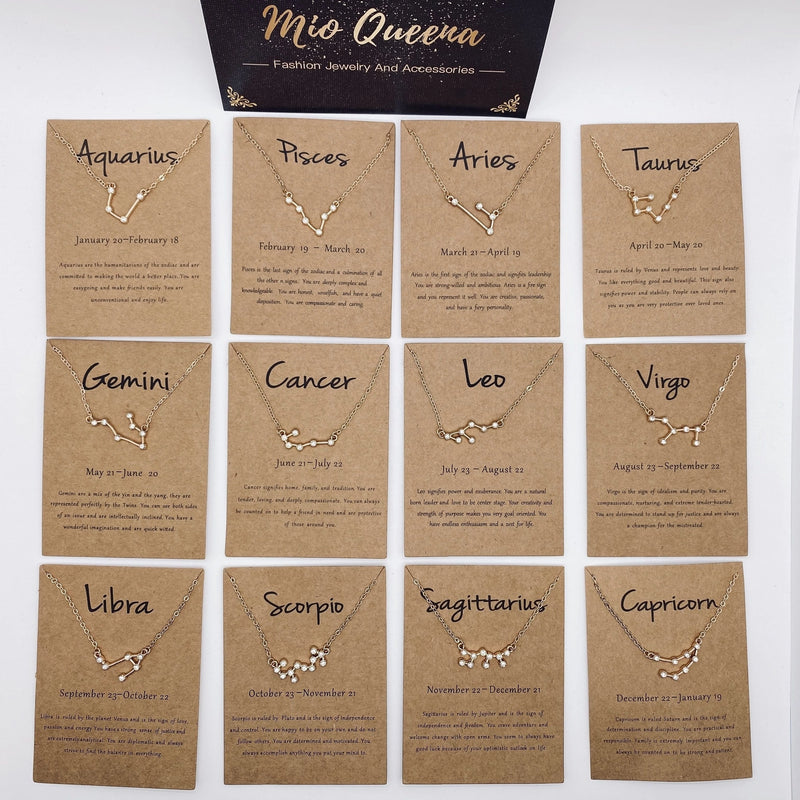 Mio Queena
Fashion Jewelry And Accessories
Aquarius
January 20-February 18
Aquarius are the humanitarians of the zodiac and are
committed to making the world a better place. You are
easygoing and make friends easily. You are
unconventional and enjoy life.
Pisces
February 19 - March 20
Pisces is the last sign of the zodiac and a culmination of all
the other n signs. You are deeply complex and
knowledgeable. You are honest, unselfish, and have a quiet
disposition. You are compassionate and caring.
Aries
March 21-April 19
Aries is the first sign of the zodiac and signifies leadership
You are strong-willed and ambitious. Aries is a fire sign
and you represent it well. You are creative, passionate,
and have a fiery personality.
Taurus
April 20-May 20
Taurus is ruled by Venus and represents love and beauty
You like everything good and beautiful. This sign also
signifies power and stability. People can always rely on
you as you are very protective over loved ones.
Gemini
May 21-June 20
Gemini are a mix of the yin and the yang, they are
represented perfectly by the Twins. You can see both sides
of an issue and are intellectually inclined. You have a
wonderful imagination and are quick witted.
Cancer
June 21-July 22
Cancer signifies home, family, and tradition. You are
tender, loving, and deeply, compassionate. You can always
be counted on to help a friend in need and are protective
of those around you.
Leo
July 23-August 22
Leo signifies power and exuberance. You are a natural
born leader and love to be center stage. Your creativity and
strength of purpose makes you very goal oriented. You
have endless enthusiasm and a zest for life.
Virgo
August 23-September 22
Virgo is the sign of idealism and purity. You are
compassionate, nurturing, and extreme tender-hearted.
You are determined to stand up for justice and are always
a champion for the mistreated.
Libra
September 23-October 22
Libra is ruled by the planet Venus and is the sign of love,
passion and energy You have a strong sense of justice and
are extremely analytical. You are diplomatic and always
strive to find the balance in everything.
Scorpio
October 23-November 21
Scorpio is ruled by Pluto and is the sign of independence
and control. You are happy to be on your own and do not
follow others. You are determined and motivated. You
always accomplish anything you put your mind to.
Sagittarius
November 22-December 21
Sagittarius is ruled by Jupiter and is the sign of
independence and freedom. You crave adventure and
welcome change with open arms. You seem to always have
good luck because of your optimistic outlook on life.
Capricorn
December 22-January 19
Capricorn is ruled Saturn and is the sign of
determination and discipline. You are practical and
responsible. Family is extremely important and you can
always be counted on to be strong and patient.